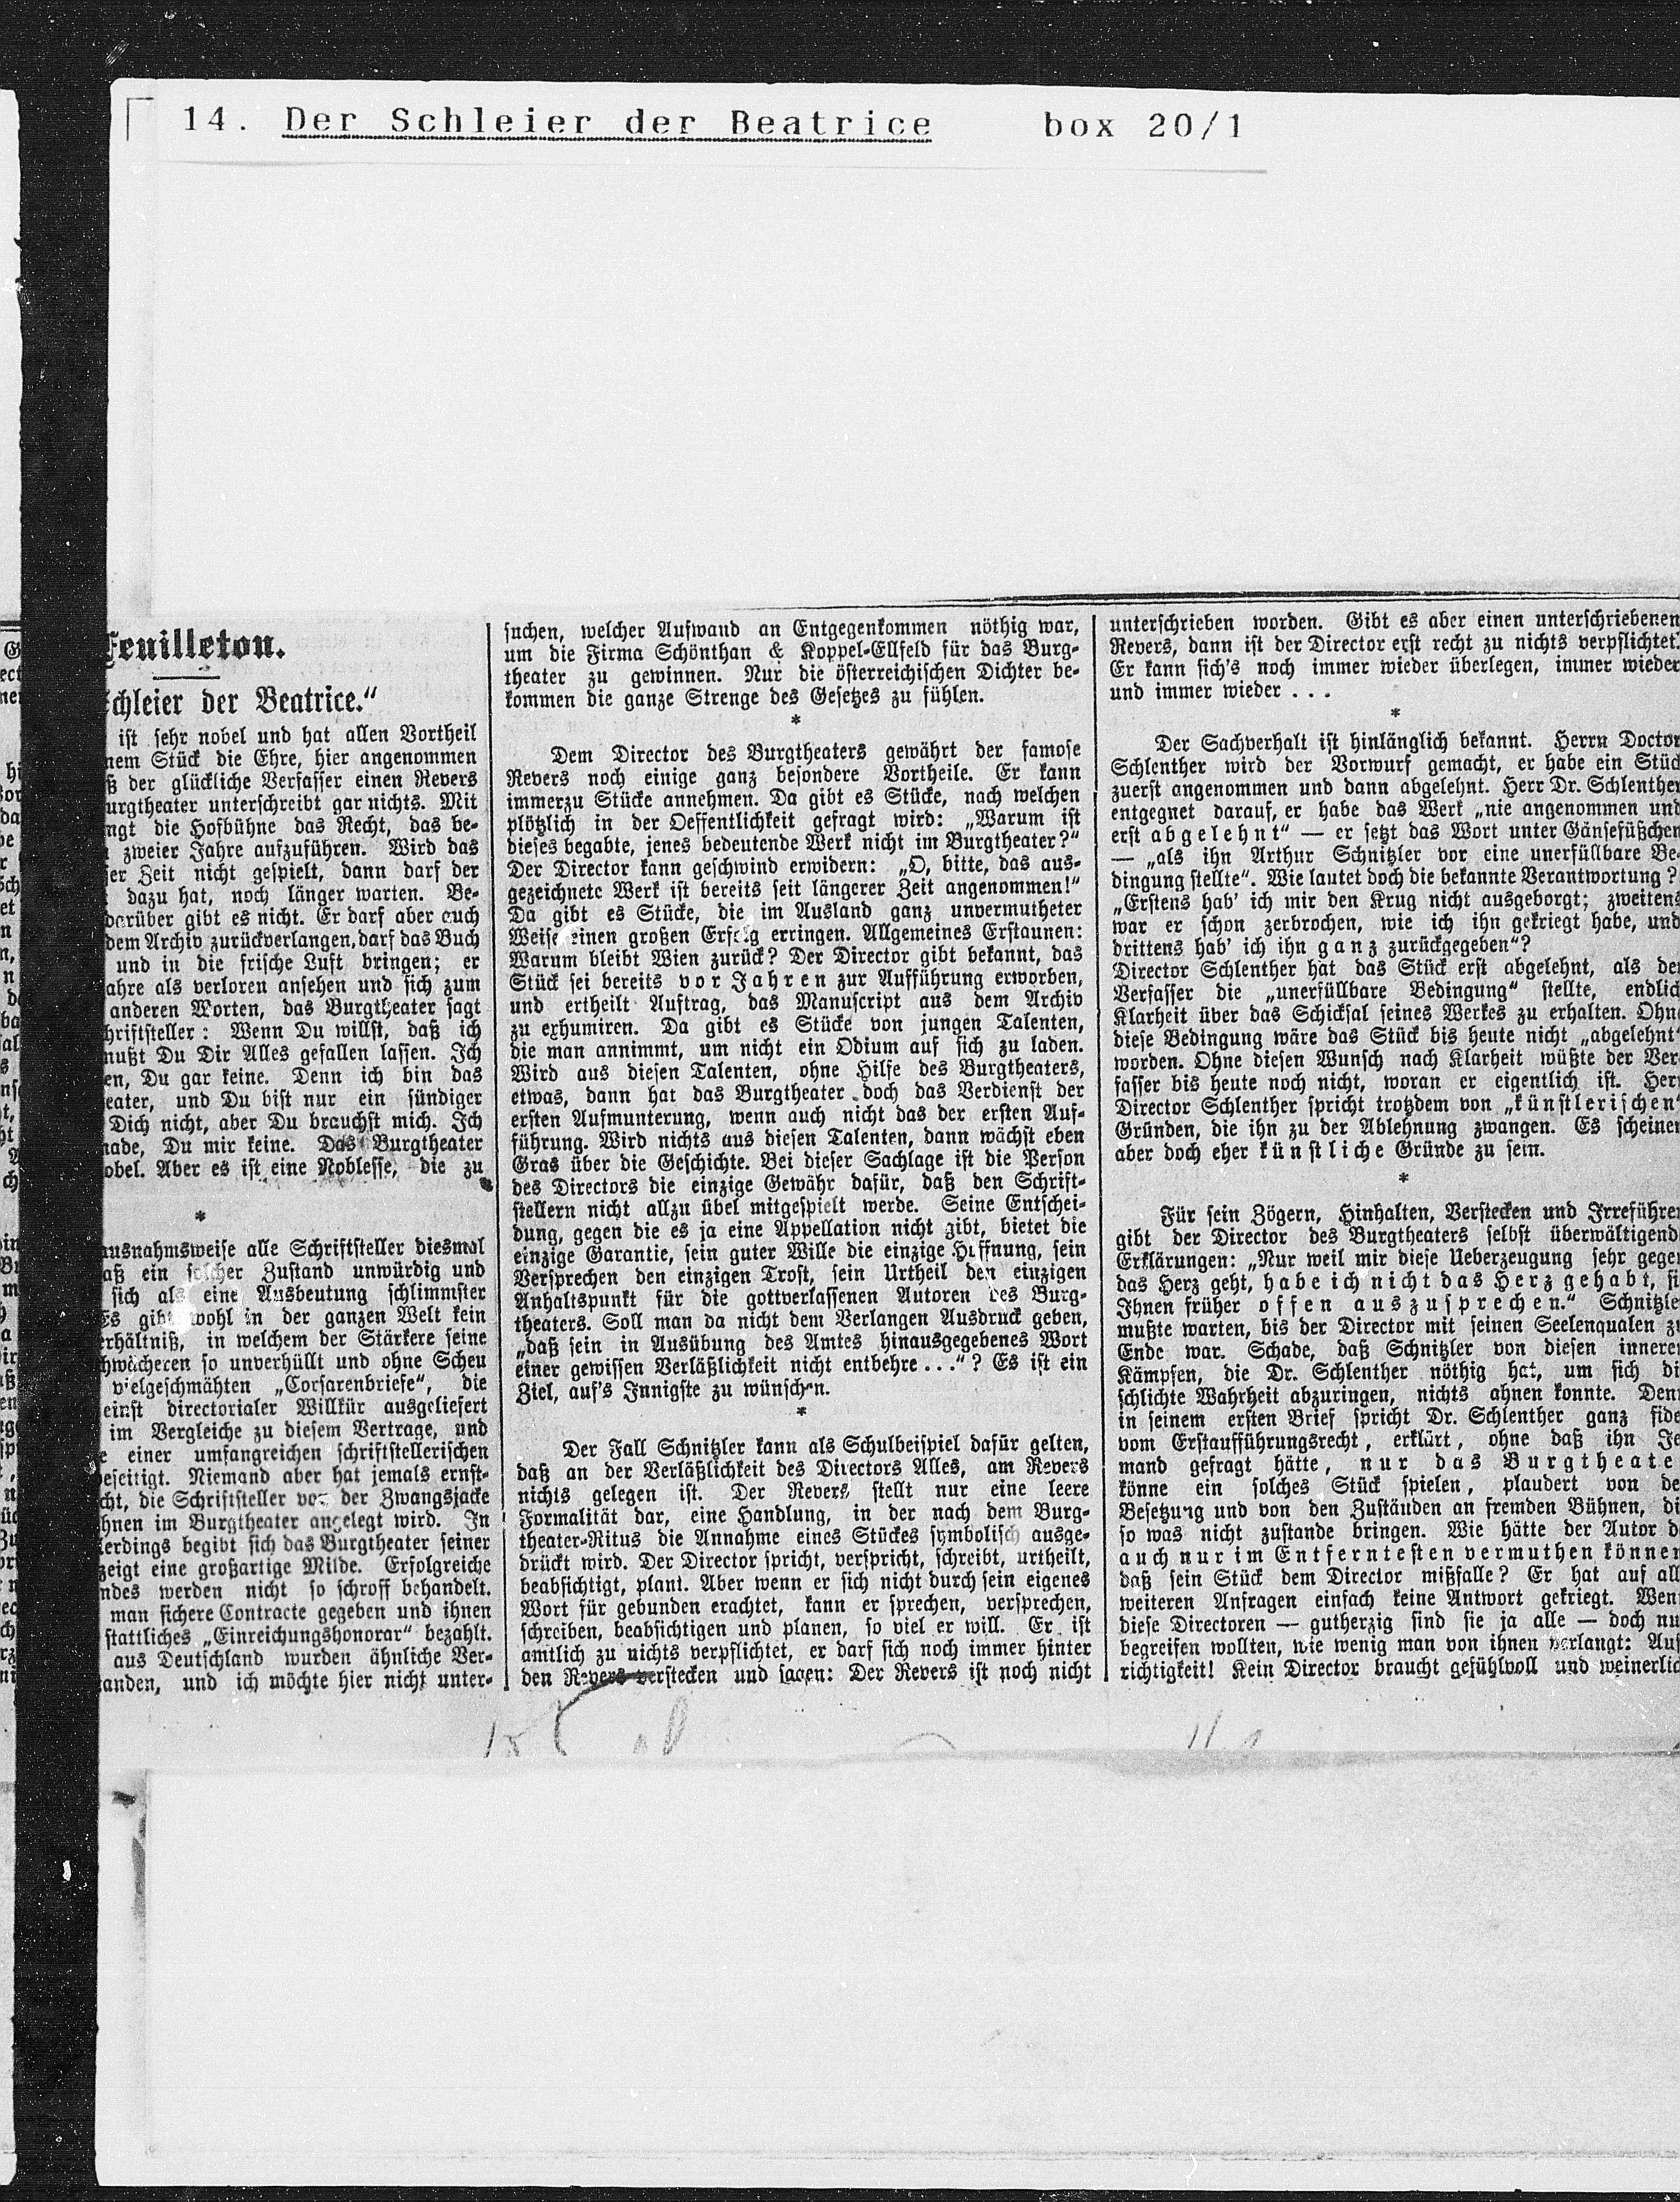 14. Der Schleier der Beatrice box 20/1
Feuilleton.
Schleier der Beatrice."
ist sehr nobel und hat allen Vortheil
nem Stück die Ehre, hier angenommen
ß der glückliche Verfasser einen Revers
urgtheater unterschreibt gar nichts. Mit
ngt die Hofbühne das Recht, das be-
zweier Jahre aufzuführen. Wird das
ser Zeit nicht gespielt, dann darf der
dazu hat, noch länger warten. Be-
darüber gibt es nicht. Er darf aber auch
dem Archiv zurückverlangen, darf das Buch
und in die frische Luft bringen; er
ahre als verloren ansehen und sich zum
anderen Worten, das Burgtheater sagt
hriftsteller: Wenn Du willst, daß ich
mußt Du Dir Alles gefallen lassen. Ich
en, Du gar keine. Denn ich bin das
eater, und Du bist nur ein sündiger
Dich nicht, aber Du brauchst mich. Ich
nade, Du mir keine. Das Burgtheater
obel. Aber es ist eine Noblesse, die zu
*
ausnahmsweise alle Schriftsteller diesmal
aß ein solcher Zustand unwürdig und
sich als eine Ausbeutung schlimmster
Es gibt wohl in der ganzen Welt kein
erhältniß, in welchem der Stärkere seine
hwächeren so unverhüllt und ohne Scheu
vielgeschmähten „Corsarenbriefe“, die
einst directorialer Willkür ausgeliefert
im Vergleiche zu diesem Vertrage, und
e einer umfangreichen schriftstellerischen
eseitigt. Niemand aber hat jemals ernst-
cht, die Schriftsteller von der Zwangsjacke
hnen im Burgtheater angelegt wird. In
erdings begibt sich das Burgtheater seiner
zeigt eine großartige Milde. Erfolgreiche
ndes werden nicht so schroff behandelt.
man sichere Contracte gegeben und ihnen
stattliches „Einreichungshonorar“ bezahlt.
aus Deutschland wurden ähnliche Ver-
anden, und ich möchte hier nicht unter-
suchen, welcher Aufwand an Entgegenkommen nöthig war,
um die Firma Schönthan & Koppel-Ellfeld für das Burg-
theater zu gewinnen. Nur die österreichischen Dichter be-
kommen die ganze Strenge des Gesetzes zu fühlen.
*
Dem Director des Burgtheaters gewährt der famose
Revers noch einige ganz besondere Vortheile. Er kann
immerzu Stücke annehmen. Da gibt es Stücke, nach welchen
plötzlich in der Oeffentlichkeit gefragt wird: „Warum ist
dieses begabte, jenes bedeutende Werk nicht im Burgtheater?“
Der Director kann geschwind erwidern: „O, bitte, das aus-
gezeichnete Werk ist bereits seit längerer Zeit angenommen!“
Da gibt es Stücke, die im Ausland ganz unvermutheter
Weise einen großen Erfolg erringen. Allgemeines Erstaunen:
Warum bleibt Wien zurück? Der Director gibt bekannt, das
Stück sei bereits vor Jahren zur Aufführung erworben,
und ertheilt Auftrag, das Manuscript aus dem Archiv
zu exhumiren. Da gibt es Stücke von jungen Talenten,
die man annimmt, um nicht ein Odium auf sich zu laden.
Wird aus diesen Talenten, ohne Hilfe des Burgtheaters,
etwas, dann hat das Burgtheater doch das Verdienst der
ersten Aufmunterung, wenn auch nicht das der ersten Auf-
führung. Wird nichts aus diesen Talenten, dann wächst eben
Gras über die Geschichte. Bei dieser Sachlage ist die Person
des Directors die einzige Gewähr dafür, daß den Schrift-
stellern nicht allzu übel mitgespielt werde. Seine Entschei-
dung, gegen die es ja eine Appellation nicht gibt, bietet die
einzige Garantie, sein guter Wille die einzige Hoffnung, sein
Versprechen den einzigen Trost, sein Urtheil den einzigen
Anhaltspunkt für die gottverlassenen Autoren des Burg-
theaters. Soll man da nicht dem Verlangen Ausdruck geben,
„daß sein in Ausübung des Amtes hinausgegebenes Wort
einer gewissen Verläßlichkeit nicht entbehre...“? Es ist ein
Ziel, auf's Innigste zu wünschen.
*
Der Fall Schnitzler kann als Schulbeispiel dafür gelten,
daß an der Verläßlichkeit des Directors Alles, am Revers
nichts gelegen ist. Der Revers stellt nur eine leere
Formalität dar, eine Handlung, in der nach dem Burg-
theater-Ritus die Annahme eines Stückes symbolisch ausge-
drückt wird. Der Director spricht, verspricht, schreibt, urtheilt,
beabsichtigt, plant. Aber wenn er sich nicht durch sein eigenes
Wort für gebunden erachtet, kann er sprechen, versprechen,
schreiben, beabsichtigen und planen, so viel er will. Er ist
amtlich zu nichts verpflichtet, er darf sich noch immer hinter
den Revers verstecken und sagen: Der Revers ist noch nicht
unterschrieben worden. Gibt es aber einen unterschriebenen
Revers, dann ist der Director erst recht zu nichts verpflichtet.
Er kann sich's noch immer wieder überlegen, immer wieder
und immer wieder...
*
Der Sachverhalt ist hinlänglich bekannt. Herrn Doctor
Schlenther wird der Vorwurf gemacht, er habe ein Stück
zuerst angenommen und dann abgelehnt. Herr Dr. Schlenther
entgegnet darauf, er habe das Werk „nie angenommen und
erst abgelehnt“ — er setzt das Wort unter Gänsefüßchen
— „als ihn Arthur Schnitzler vor eine unerfüllbare Be-
dingung stellte“. Wie lautet doch die bekannte Verantwortung?
„Erstens hab' ich mir den Krug nicht ausgeborgt; zweitens
war er schon zerbrochen, wie ich ihn gekriegt habe, und
drittens hab' ich ihn ganz zurückgegeben“?
Director Schlenther hat das Stück erst abgelehnt, als der
Verfasser die „unerfüllbare Bedingung“ stellte, endlich
Klarheit über das Schicksal seines Werkes zu erhalten. Ohne
diese Bedingung wäre das Stück bis heute nicht „abgelehnt“
worden. Ohne diesen Wunsch nach Klarheit wüßte der Ver-
fasser bis heute noch nicht, woran er eigentlich ist. Herr
Director Schlenther spricht trotzdem von „künstlerischen“
Gründen, die ihn zu der Ablehnung zwangen. Es scheinen
aber doch eher künstliche Gründe zu sein.
*
Für sein Zögern, Hinhalten, Verstecken und Irreführen
gibt der Director des Burgtheaters selbst überwältigend
Erklärungen: „Nur weil mir diese Ueberzeugung sehr gegen
das Herz geht, habe ich nicht das Herz gehabt, si
Ihnen früher offen auszusprechen.“ Schnitzler
mußte warten, bis der Director mit seinen Seelenqualen zu
Ende war. Schade, daß Schnitzler von diesen inneren
Kämpfen, die Dr. Schlenther nöthig hat, um sich di
schlichte Wahrheit abzuringen, nichts ahnen konnte. Denn
in seinem ersten Brief spricht Dr. Schlenther ganz fide
vom Erstaufführungsrecht, erklärt, ohne daß ihn Je
mand gefragt hätte, nur das Burgtheate
könne ein solches Stück spielen, plaudert von de
Besetzung und von den Zuständen an fremden Bühnen, di
so was nicht zustande bringen. Wie hätte der Autor d
auch nur im Entferntesten vermuthen können
daß sein Stück dem Director mißfalle? Er hat auf all
weiteren Anfragen einfach keine Antwort gekriegt. Wenn
diese Directoren — gutherzig sind sie ja alle — doch nu
begreifen wollten, wie wenig man von ihnen verlangt: Auf
richtigkeit! Kein Director braucht gefühlvoll und weinerlic